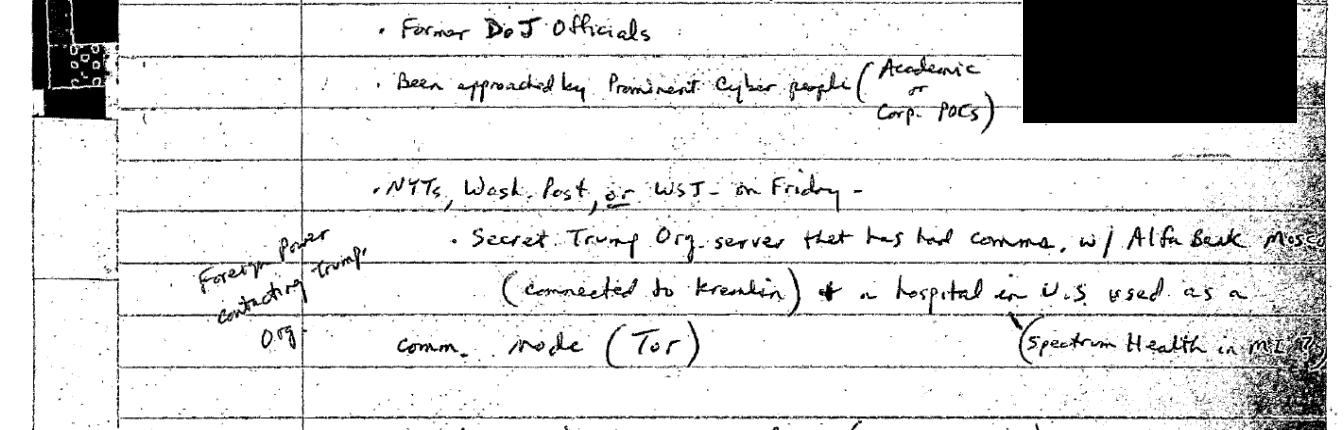 . Former DoJ Officials
. Been approached by Prominent Cyber people ( Academic
or
Corp. POCs )
. NYTs, Wash. Post, or WSJ - on Friday -
. Secret Trump Org. server that has had comms. w/ Alfa Bank Mosco
Foreign Power
contacting Trump.
Org.
(connected to Kremlin) + a hospital in U.S used as a
comm. node (Tor)
(Spectrum Health in MI?)